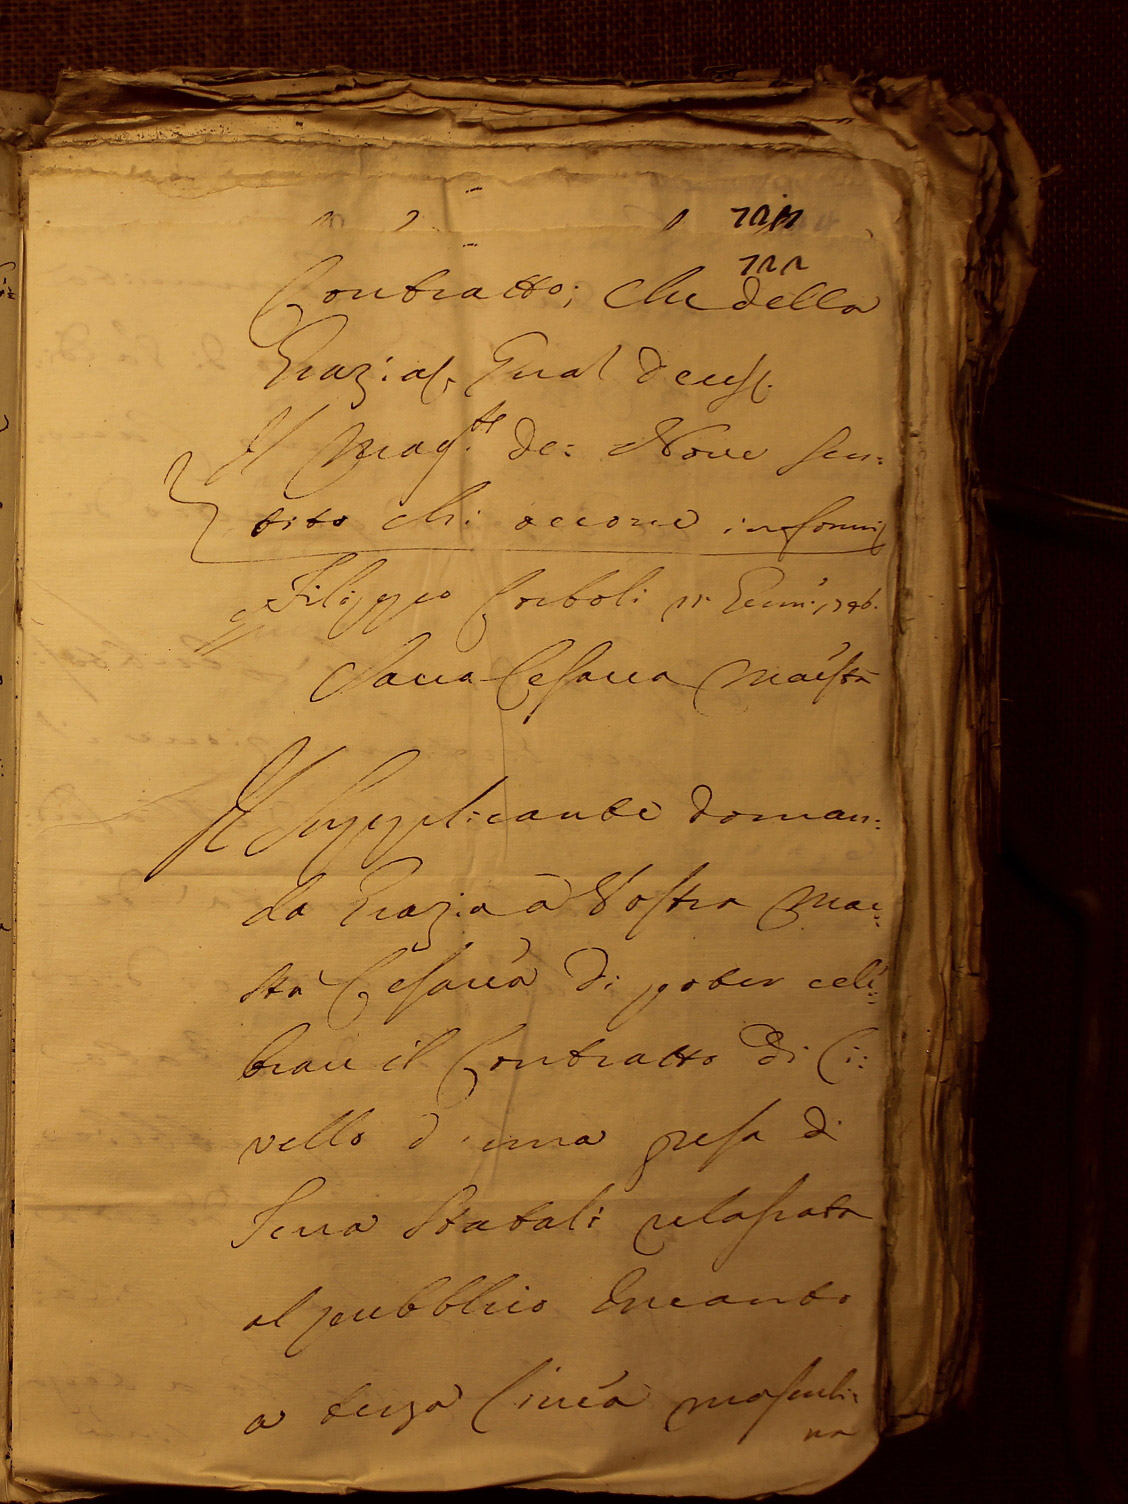 Contratto; che della
Grazia
Il Mag.te de: Nove sen:
tito chi occorre informi
Filippo Corboli Genn: 1746.
Sacra Cesarea Maestà
Il Supplicante doman:
da Grazia à Vostra Mae:
stà Cesarea di poter cele:
brare il Contratto di Li:
vello d'una presa di
Terra Statali rilasciata
al pubblico Incanto
a terza Linea masculi:
na